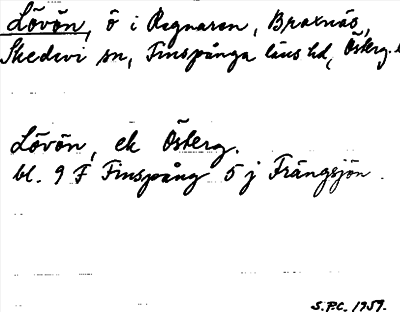 Lövön, ö i Regnaren, Braxnäs,
Skedevi sn, Finspånga läns hd, Österg.
Lövön, ek Österg.
bl. 9 F Finspång 5 j Frängsjön.
S.P.C. 1959.